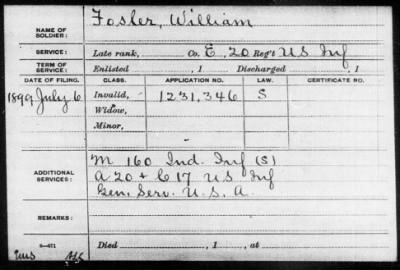 NAME OF SOLDIER: Foster, William
SERVICE: Late rank, Co. E, 20 Reg't US Inf
TERM OF SERVICE: Enlisted , 1 Discharged , 1
DATE OF FILING. CLASS. APPLICATION NO. LAW. CERTIFICATE NO.
1899 July 6 Invalid, 1231,346 S
Widow,
Minor,
ADDITIONAL SERVICES: M 160 Ind. Inf (S)
A 20 + C 17 US Inf
Gen. Serv. U.S.A.
REMARKS:
Died , 1 , at